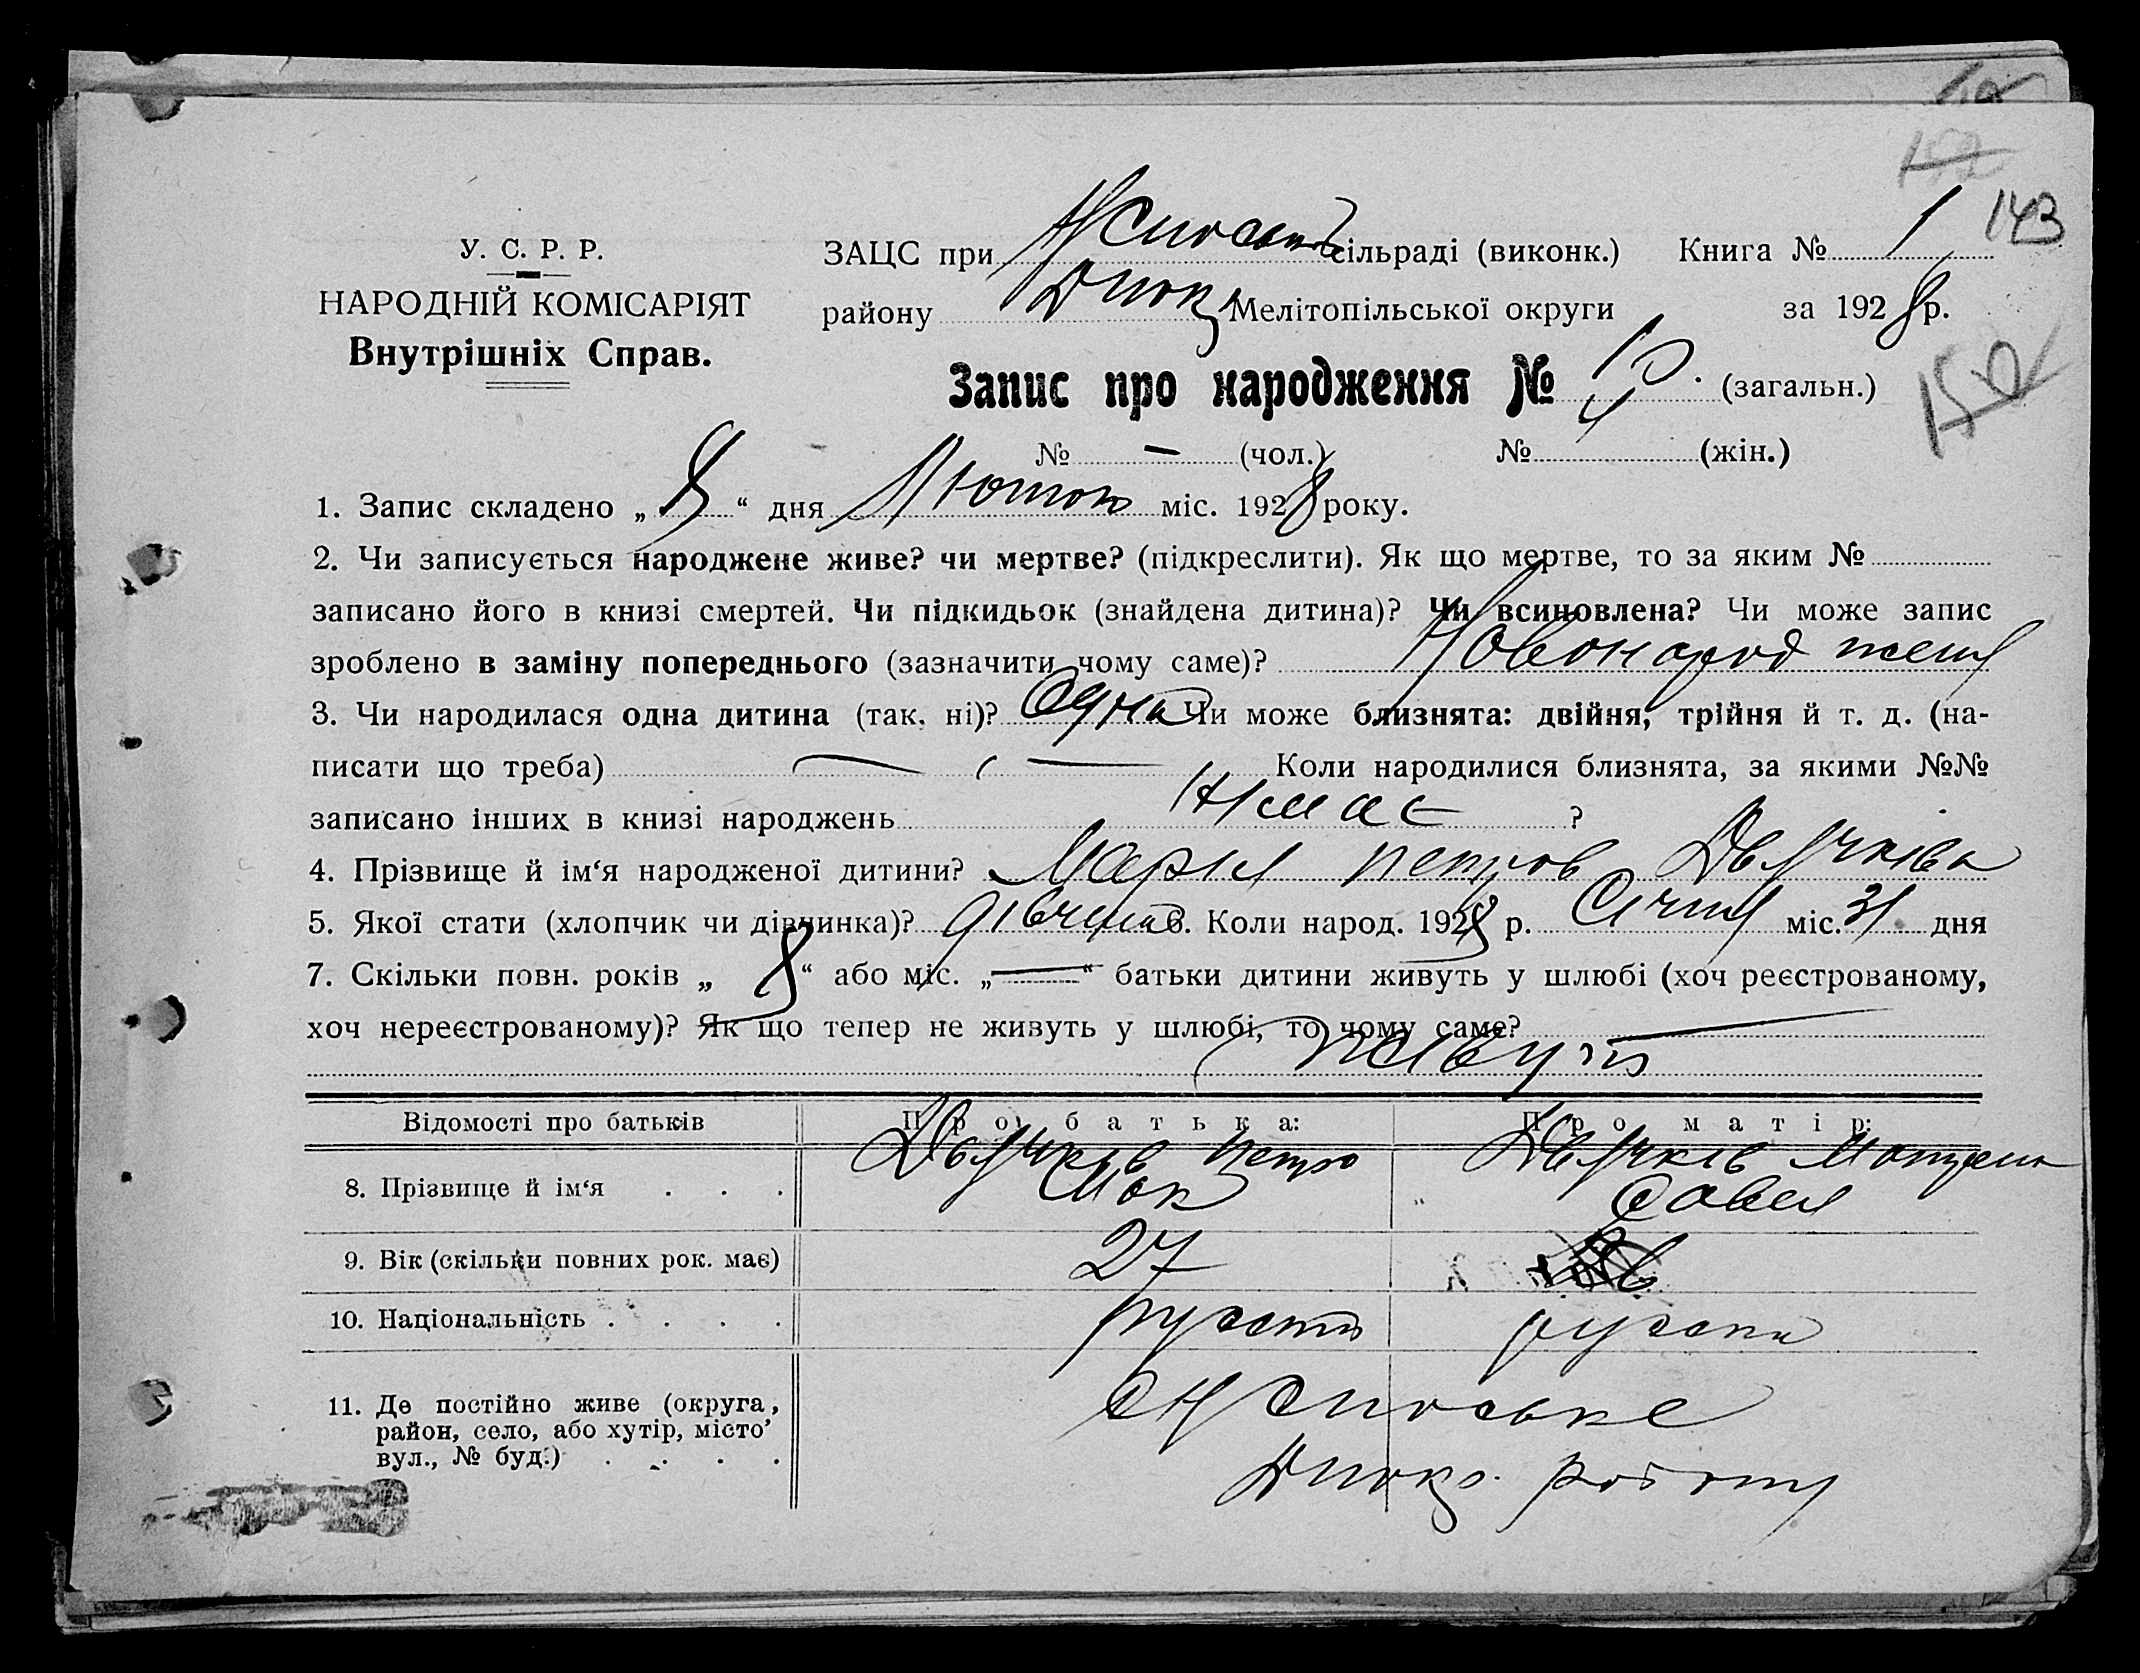 152
143
У. С. Р. Р.
НАРОДНІЙ КОМІСАРІЯТ
Внутрішніх Справ.
ЗАЦС при сільраді (виконк.) Книга № 1
району Мелітопільської округи за 1928 р.
Запис про народження № (загальн.)
150
№ — (чол.) № (жін.)
1. Запис складено „8“ дня Лютого міс. 1928 року.
2. Чи записується народжене живе? чи мертве? (підкреслити). Як що мертве, то за яким №
записано його в книзі смертей. Чи підкидьок (знайдена дитина)? Чи всиновлена? Чи може запис
зроблено в заміну попереднього (зазначити чому саме)? Новонарод жения
3. Чи народилася одна дитина (так, ні)? Одна Чи може близнята: двійня, трійня й т. д. (на-
писати що треба) — — Коли народилися близнята, за якими №№
записано інших в книзі народжень Немає ?
4. Прізвище й ім‘я народженої дитини? Марія Петров
5. Якої стати (хлопчик чи дівчинка)? дівчина 6. Коли народ. 1928 р. Січня міс. 31 дня
7. Скільки повн. років „8“ або міс. „—“ батьки дитини живуть у шлюбі (хоч реєстрованому,
хоч нереєстрованому)? Як що тепер не живуть у шлюбі, то чому саме? —
живуть
Відомості про батьків Про батька: Про матір:
8. Прізвище й ім‘я . . . Петро
9. Вік (скільки повних рок. має) 27
10. Національність . . . . руська
11. Де постійно живе (округа,
район, село, або хутір, місто’
вул., № буд.) . . . .